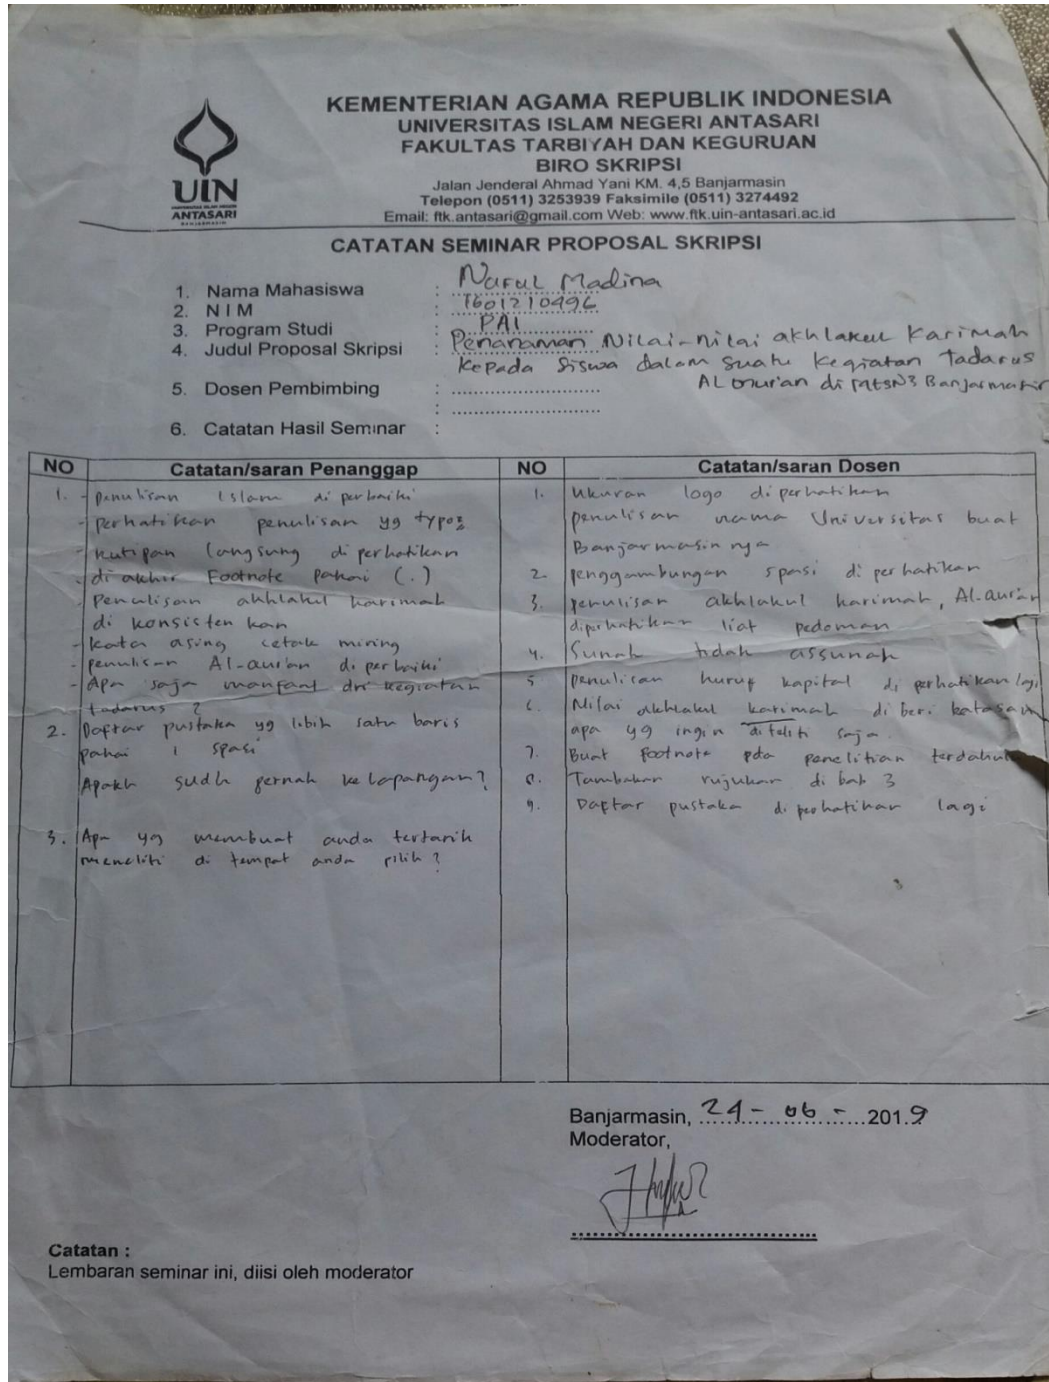 UIN
ANTASARI
BANJARMASIN
KEMENTERIAN AGAMA REPUBLIK INDONESIA
UNIVERSITAS ISLAM NEGERI ANTASARI
FAKULTAS TARBIYAH DAN KEGURUAN
BIRO SKRIPSI
Jalan Jenderal Ahmad Yani KM. 4,5 Banjarmasin
Telepon (0511) 3253939 Faksimile (0511) 3274492
Email: ftk.antasari@gmail.com Web: www.ftk.uin-antasari.ac.id
CATATAN SEMINAR PROPOSAL SKRIPSI
1. Nama Mahasiswa : Nurul Madina
2. N I M : 1601210496
3. Program Studi : PAI
4. Judul Proposal Skripsi : Penanaman Nilai-nilai akhlakul karimah
kepada siswa dalam suatu kegiatan Tadarus
Al Qur'an di MtsN3 Banjarmasin
5. Dosen Pembimbing :
:
6. Catatan Hasil Seminar :
NO Catatan/saran Penanggap
1. - penulisan Islam di perbaiki
- perhatikan penulisan yg typoz
- kutipan langsung di perhatikan
- di akhir Footnote pakai (.)
penulisan akhlakul karimah
di konsisten kan
- kata asing cetak miring
- penulisan Al-qur'an di perbaiki
- Apa saja manfaat dri kegiatan
tadarus ?
2. Daftar pustaka yg lebih satu baris
pakai 1 spasi
Apakh sudh pernah ke lapangan?
3. Apa yg membuat anda tertarik
meneliti di tempat anda pilih ?
NO Catatan/saran Dosen
1. Ukuran logo di perhatikan
penulisan nama Universitas buat
Banjarmasin nya
2. penggambungan spasi di perhatikan
3. penulisan akhlakul karimah, Al-qur'an
diperhatikan liat pedoman
4. Sunah tidak assunah
5. penulisan huruf kapital di perhatikan lagi
6. Nilai akhlakul karimah di beri batasan
apa yg ingin diteliti saja.
7. Buat footnote pda penelitian terdahulu
8. Tambakan rujukan di bab 3
9. Daftar pustaka di perhatikan lagi
Banjarmasin, 24 - 06 - 2019
Moderator,
Catatan :
Lembaran seminar ini, diisi oleh moderator